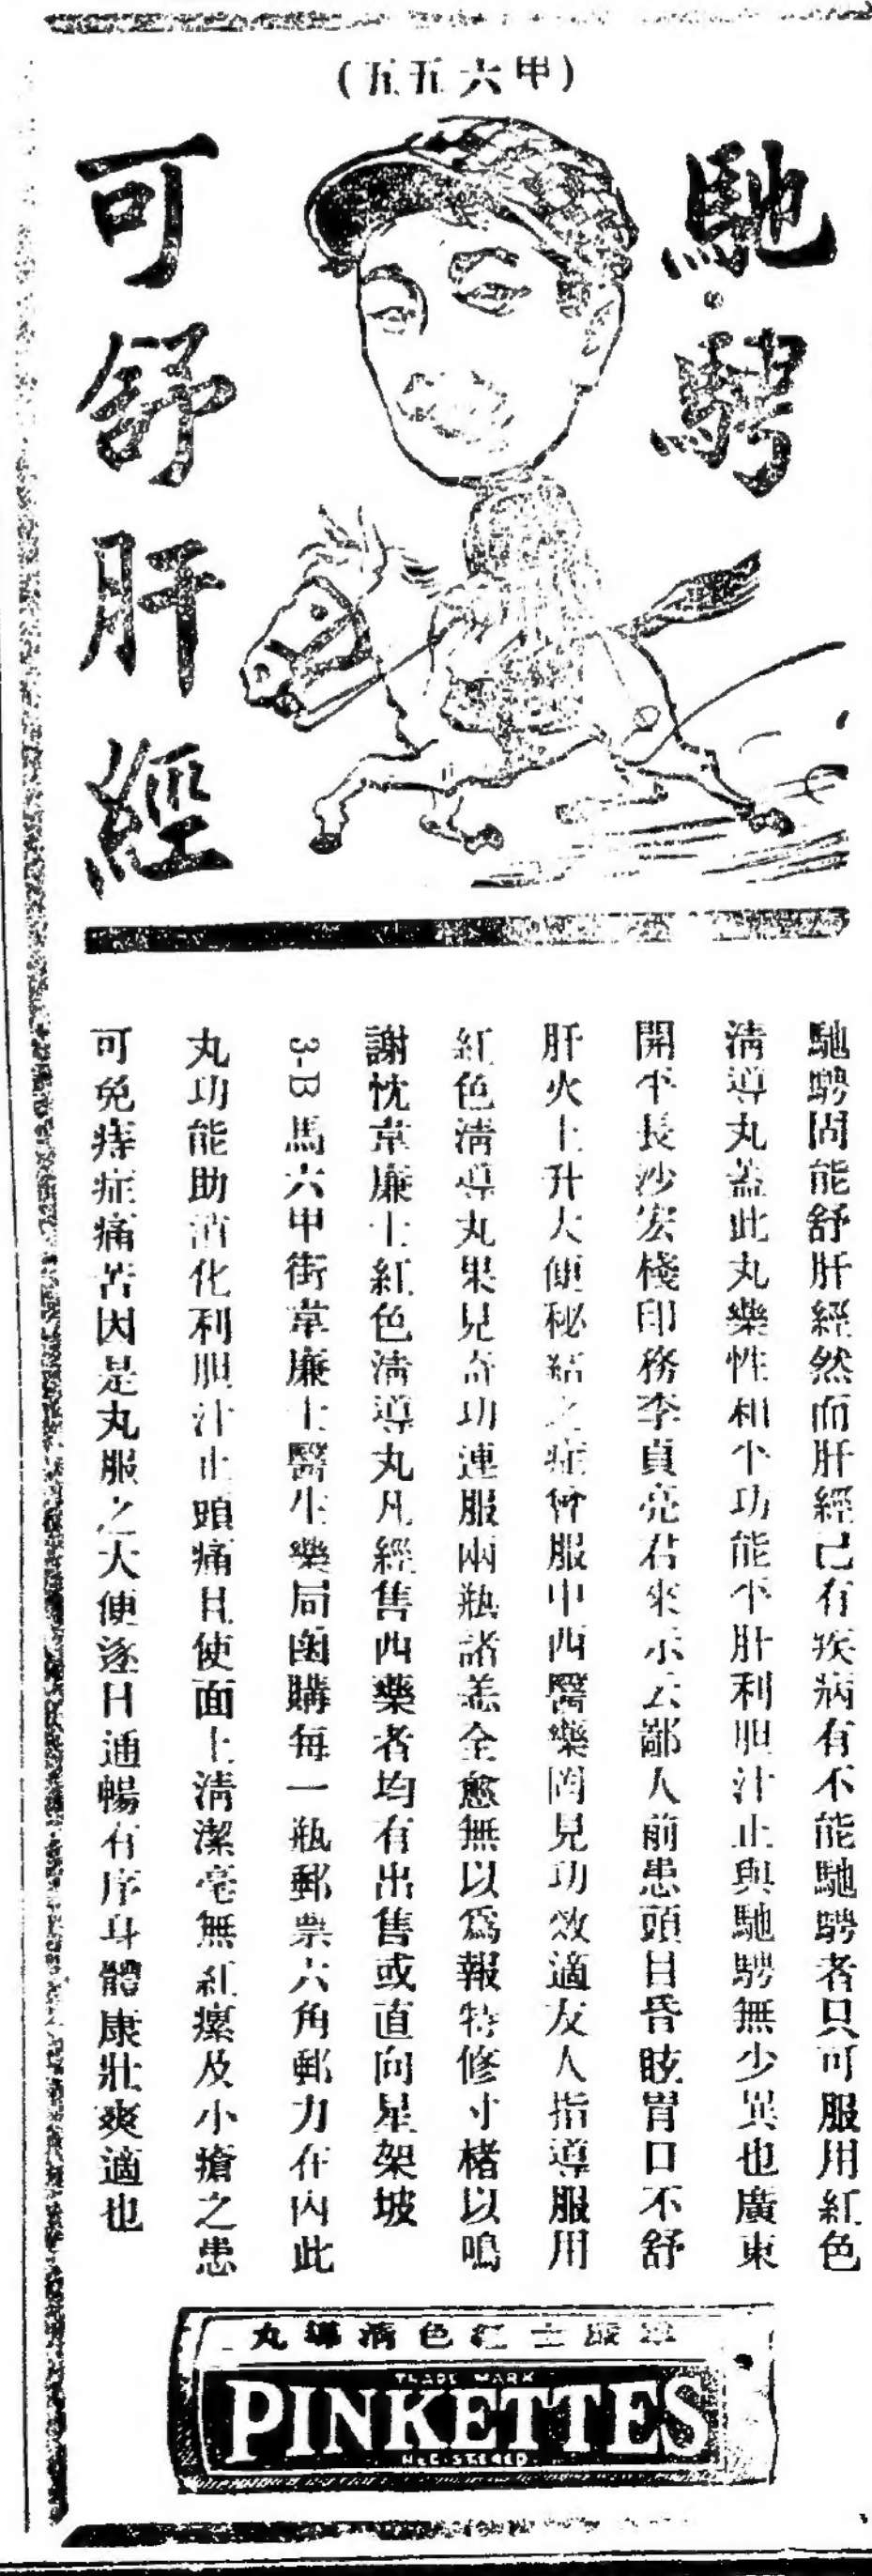 (五五六甲)
馳騁
可舒肝經
馳騁固能舒肝經然而肝經已有疾病有不能馳騁者只可服用紅色
清導丸蓋此丸藥性和平功能平肝利胆汁止與馳騁無少異也廣東
開平長沙宏棧印務李貞亮君來示云鄙人前患頭目昏眩胃口不舒
肝火上升大便秘結之症曾服中西醫藥罔見功效適友人指導服用
紅色清導丸果見奇功連服兩瓶諸恙全愈無以爲報特修寸楮以鳴
謝忱韋廉士紅色清導丸凡經售西藥者均有出售或直向星架坡
3-B馬六甲街韋廉士醫生藥局函購每一瓶郵票六角郵力在內此
丸功能助消化利胆汁止頭痛且使面上清潔毫無紅瘰及小瘡之患
可免痔症痛苦因是丸服之大便逐日通暢有序身體康壯爽適也
丸導清色紅士廉韋
TRADE MARK
PINKETTES
REGISTERED